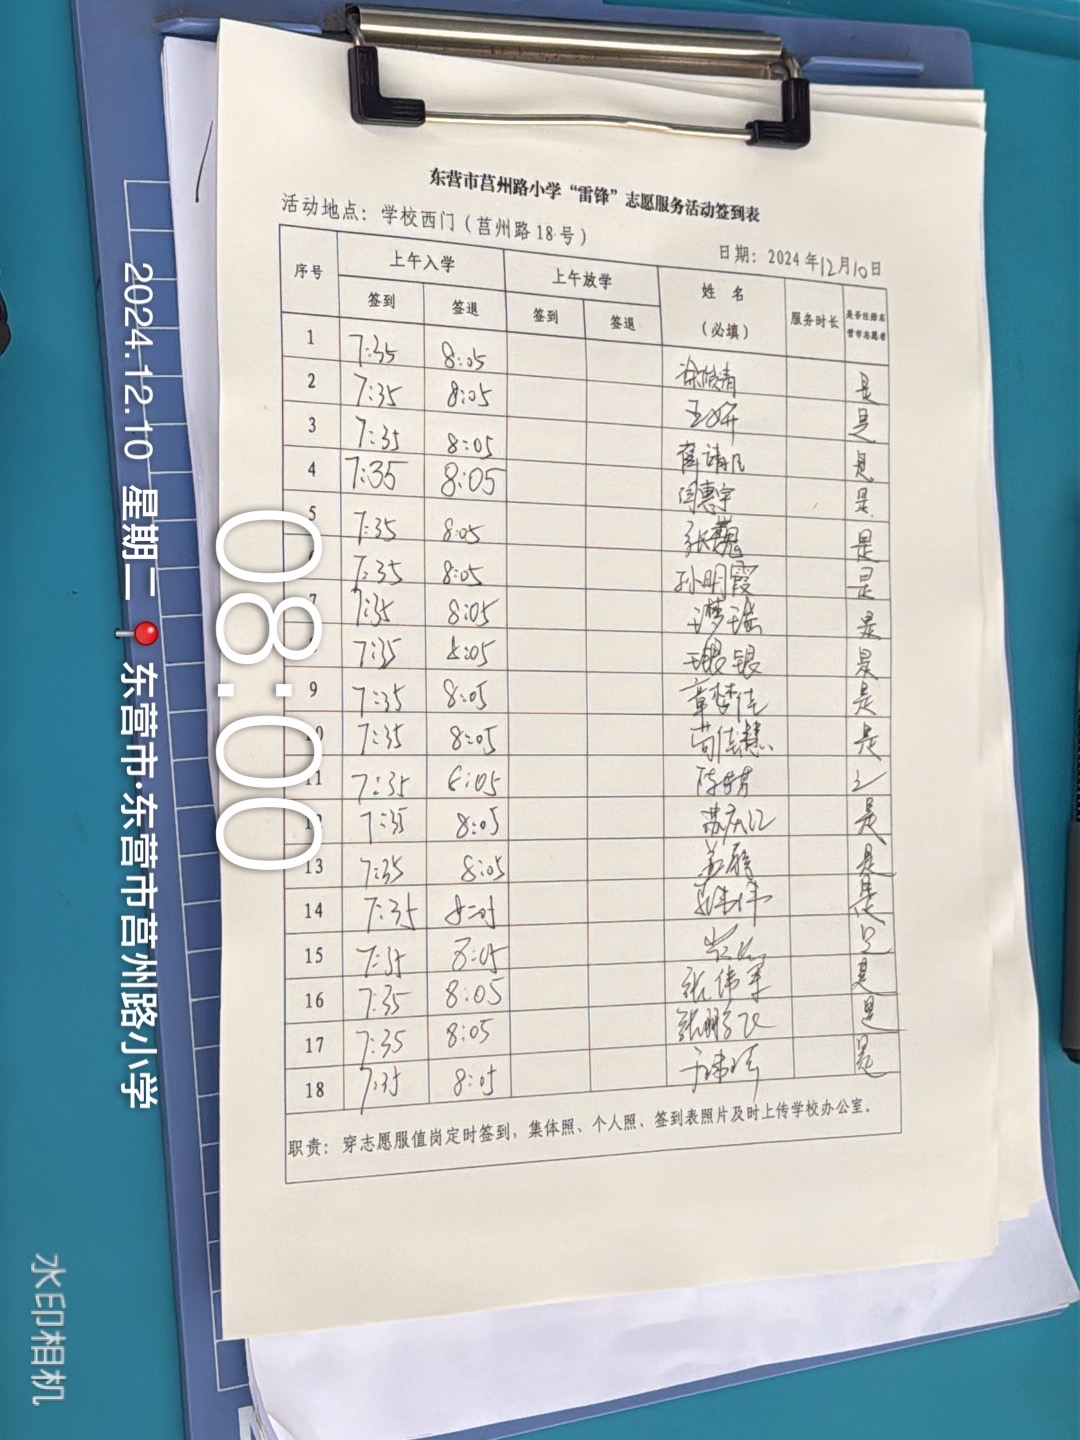 东营市莒州路小学“雷锋”志愿服务活动签到表
活动地点：学校西门（莒州路18号）
日期：2024年12月10日
序号 上午入学 上午放学 姓名（必填） 服务时长 是否注册东营市志愿者
签到 签退 签到 签退
1 7:35 8:05 是
2 7:35 8:05 是
3 7:35 8:05 是
4 7:35 8:05 闫惠宇 是
5 7:35 8:05 张巍 是
6 7:35 8:05 孙明霞 是
7 7:35 8:05 王梦瑶 是
8 7:35 8:05 王银银 是
9 7:35 8:05 章梦佳 是
10 7:35 8:05 苟佳慧 是
11 7:35 8:05
12 7:35 8:05 是
13 7:35 8:05 是
14 7:35 8:05 是
15 7:35 8:05 是
16 7:35 8:05 张伟军 是
17 7:35 8:05 张鹏飞 是
18 7:35 8:05 是
职责：穿志愿服值岗定时签到，集体照、个人照、签到表照片及时上传学校办公室。
08:00
2024.12.10 星期二 东营市·东营市莒州路小学
水印相机